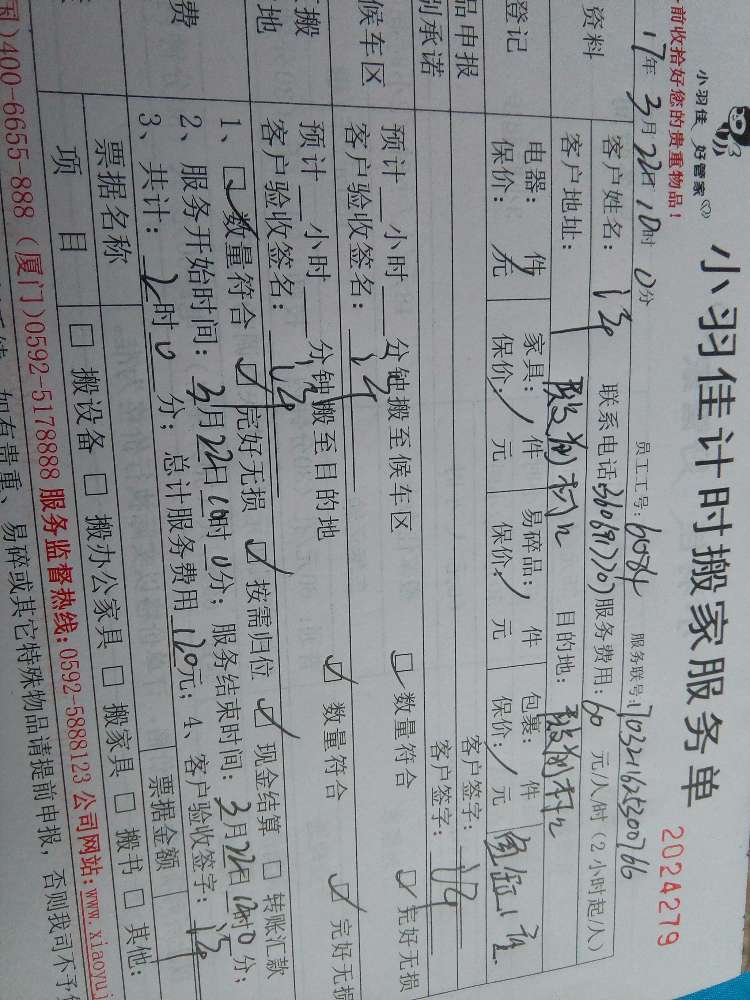 小羽佳 好管家
小羽佳计时搬家服务单
2024279
前收拾好您的贵重物品！
员工工号：6084
服务联号：
17年3月22日10时0分
资料
客户姓名：
联系电话：
服务费用：60元/人/时（2小时起/人）
客户地址：
目的地：
登记
电器： 件 家具： 件 易碎品： 件 包裹： 件
保价： 元 保价： 元 保价： 元 保价： 元
品申报
客户签字：
别承诺
客户签字：
候车区
预计 小时 分钟搬至候车区 □数量符合 □完好无损
客户验收签名：
搬
地
预计 小时 分钟搬至目的地 □数量符合 □完好无损
客户验收签名：
费
1、□数量符合 □完好无损 □按需归位 □现金结算 □转账汇款
2、服务开始时间：3月22日10时0分；服务结束时间：3月22日12时0分；
3、共计：2时0分；总计服务费用120元；4、客户验收签字：
票据名称
票据金额
项 目
□搬设备 □搬办公家具 □搬家具 □搬书 □其他：
国)400-6655-888（厦门)0592-5178888 服务监督热线:0592-5888123 公司网站:www.xiaoyuj
如有贵重、易碎或其它特殊物品请提前申报，否则我司不予